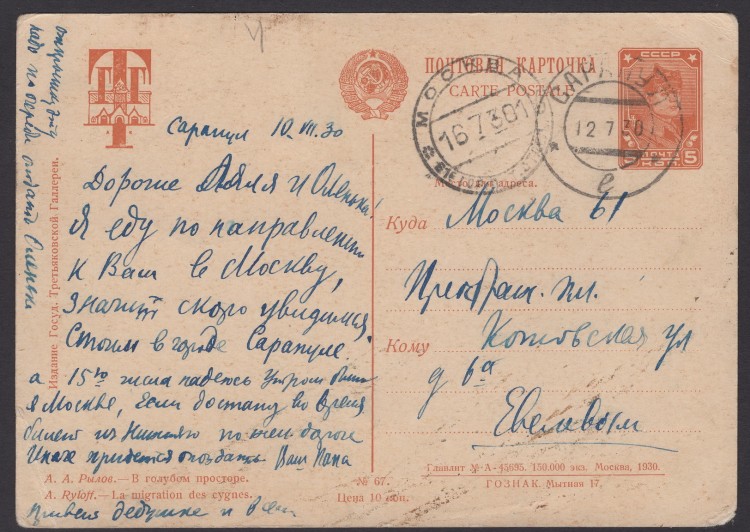 открытку эту
надо
передать Оленьке
Издание Госуд. Третьяковской Галлереи.
ТГ
ПОЧТОВАЯ КАРТОЧКА
CARTE POSTALE
СССР
ПОЧТА
5 КОП. 5
МОСКВА
16 7 30
САРАПУЛ
12 7 30
е
Сарапул 10.VII.30
Дорогие Ляля и Оленька!
Я еду по направлению
к Вам в Москву,
значит скоро увидимся.
Стоим в городе Сарапуле.
а 15го числа надеюсь утром
в Москве, если достану во время
билет из Нижняго по жел дороге
Иначе придется опоздать Ваш Папа
привет дедушке и всем
адреса.
Куда Москва 61
Преображ. пл.
Кому Котовская ул
д 6а
А. А. Рылов.—В голубом просторе.
A. Ryloff.—La migration des cygnes.
№ 67.
Цена 10 коп.
Главлит № А-45635. 150.000 экз. Москва, 1930.
ГОЗНАК. Мытная 17.